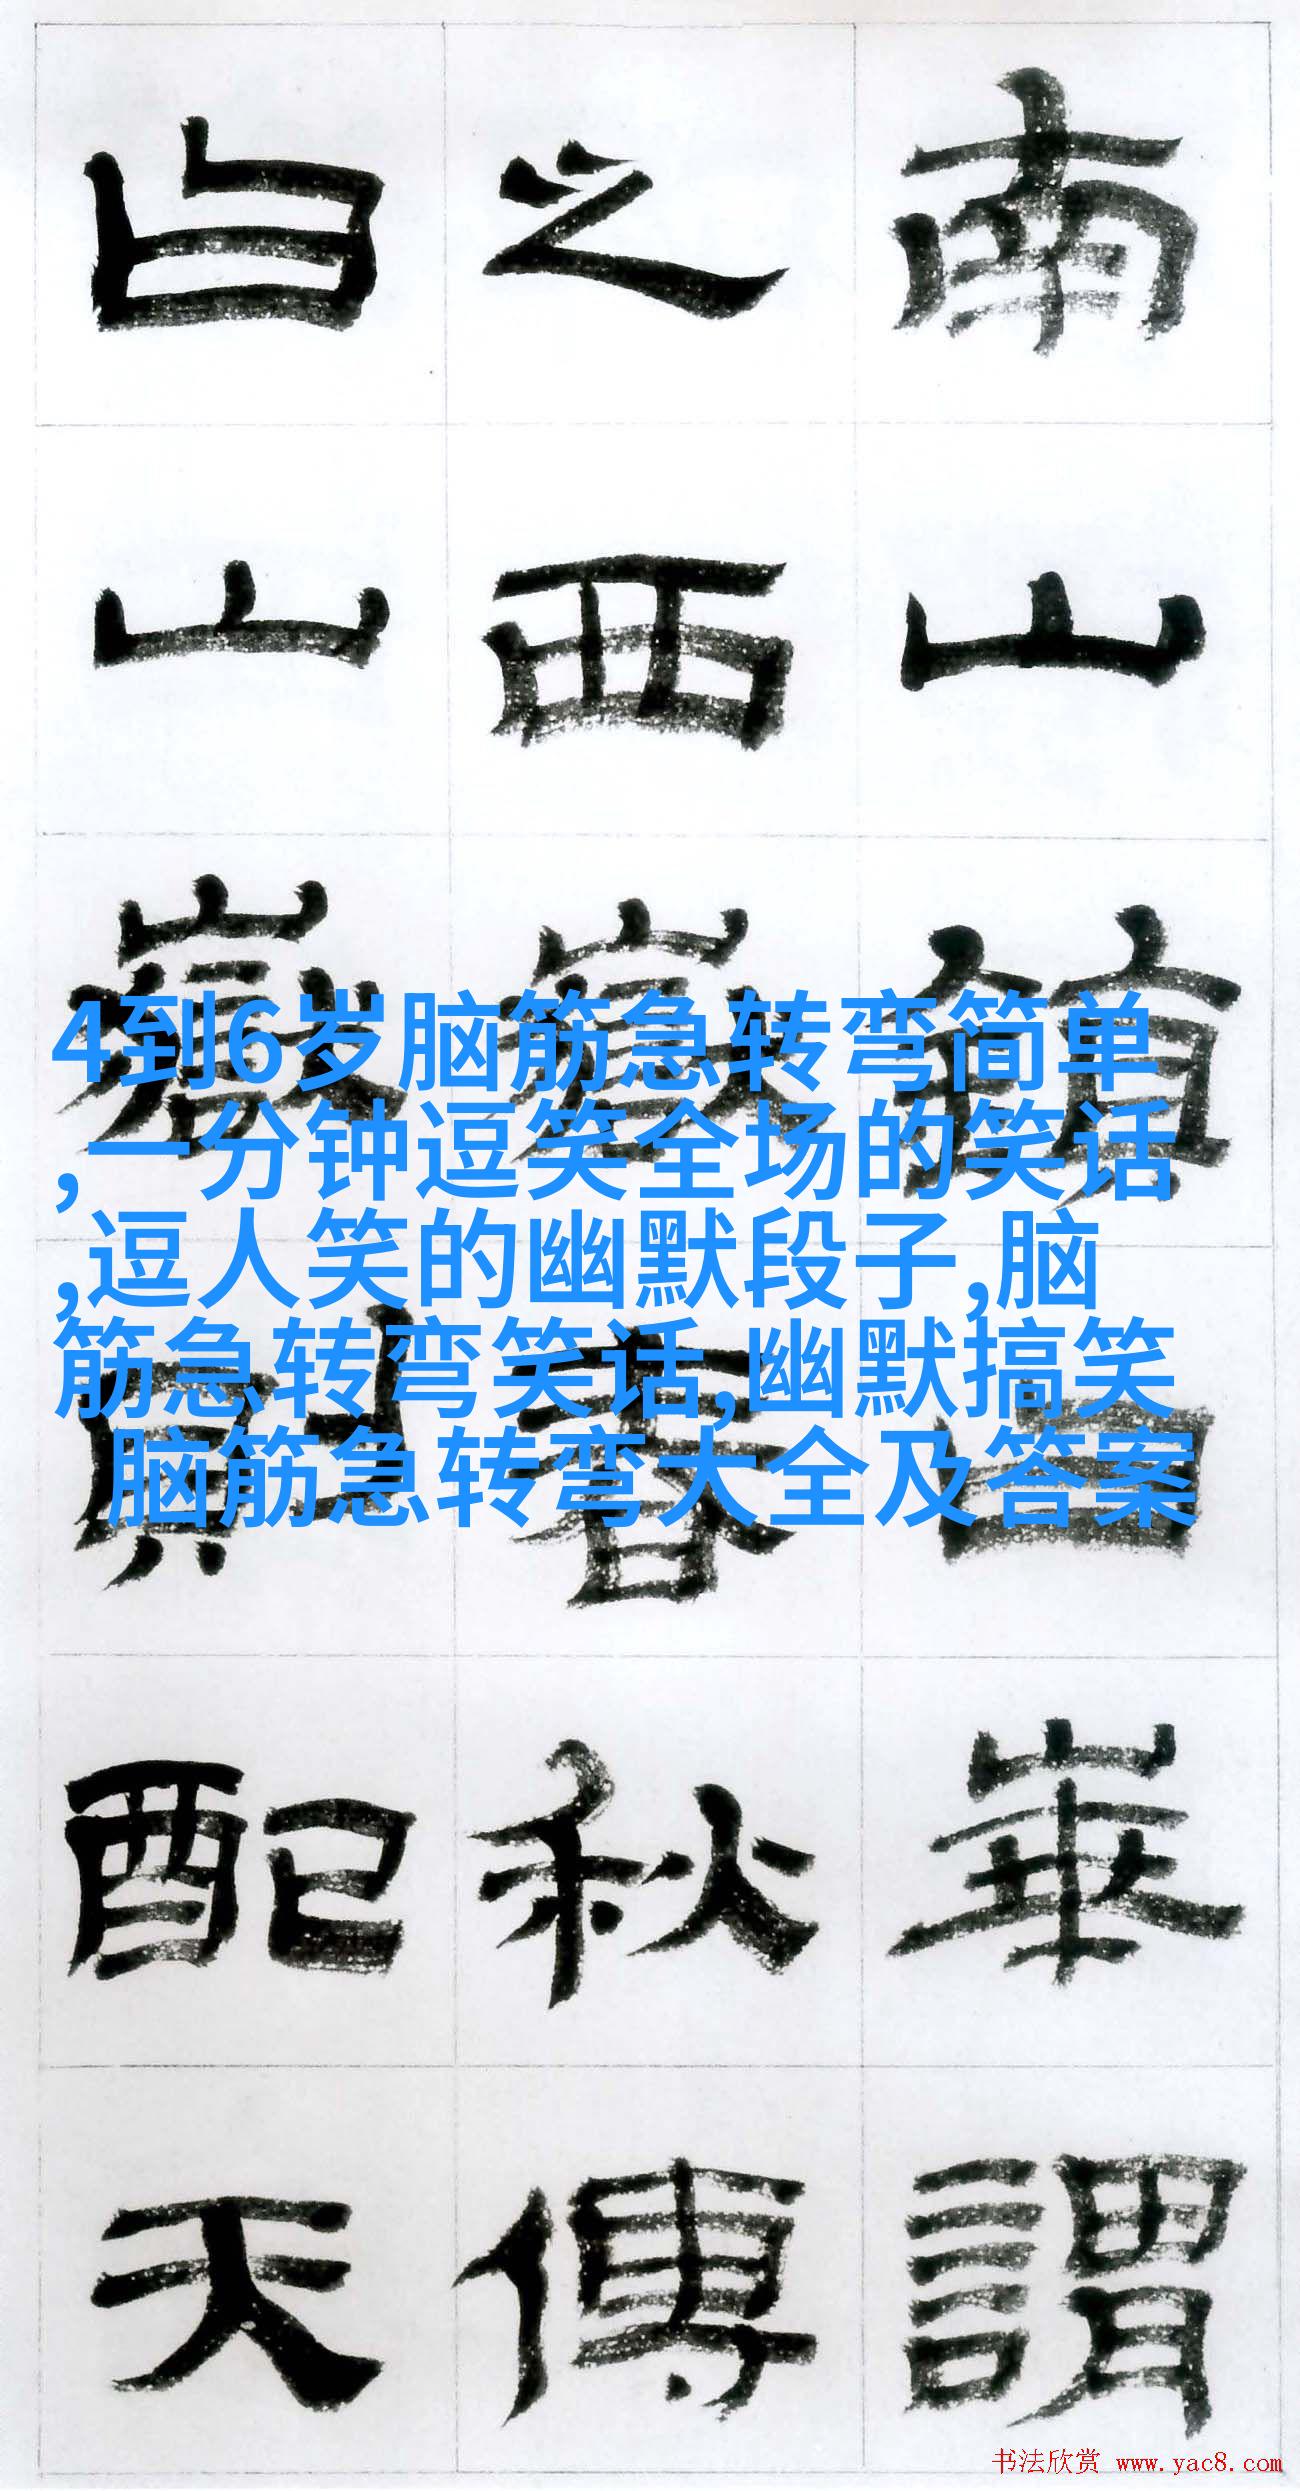 南山鎮曰崋謂
之西嶽春秋傳
曰山嶽則配天
4到6岁脑筋急转弯简单
,一分钟逗笑全场的笑话
,逗人笑的幽默段子,脑
筋急转弯笑话,幽默搞笑
脑筋急转弯大全及答案
书法欣赏 www.yac8.com